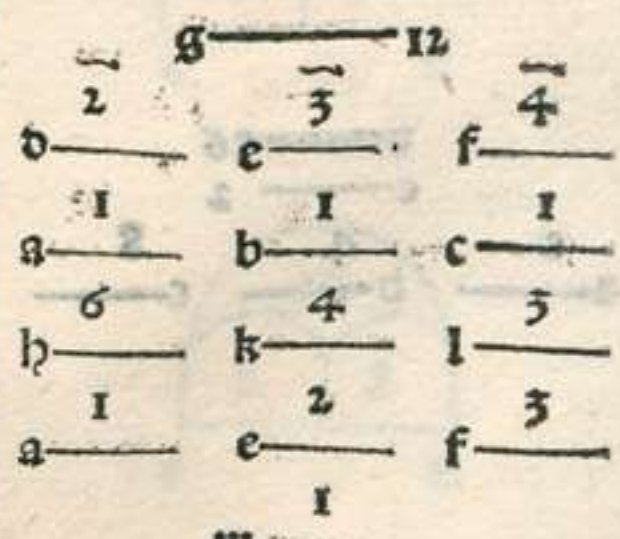 g 12
2 3 4
d e f
1 1 1
a b c
6 4 3
h k l
1 2 3
a e f
1